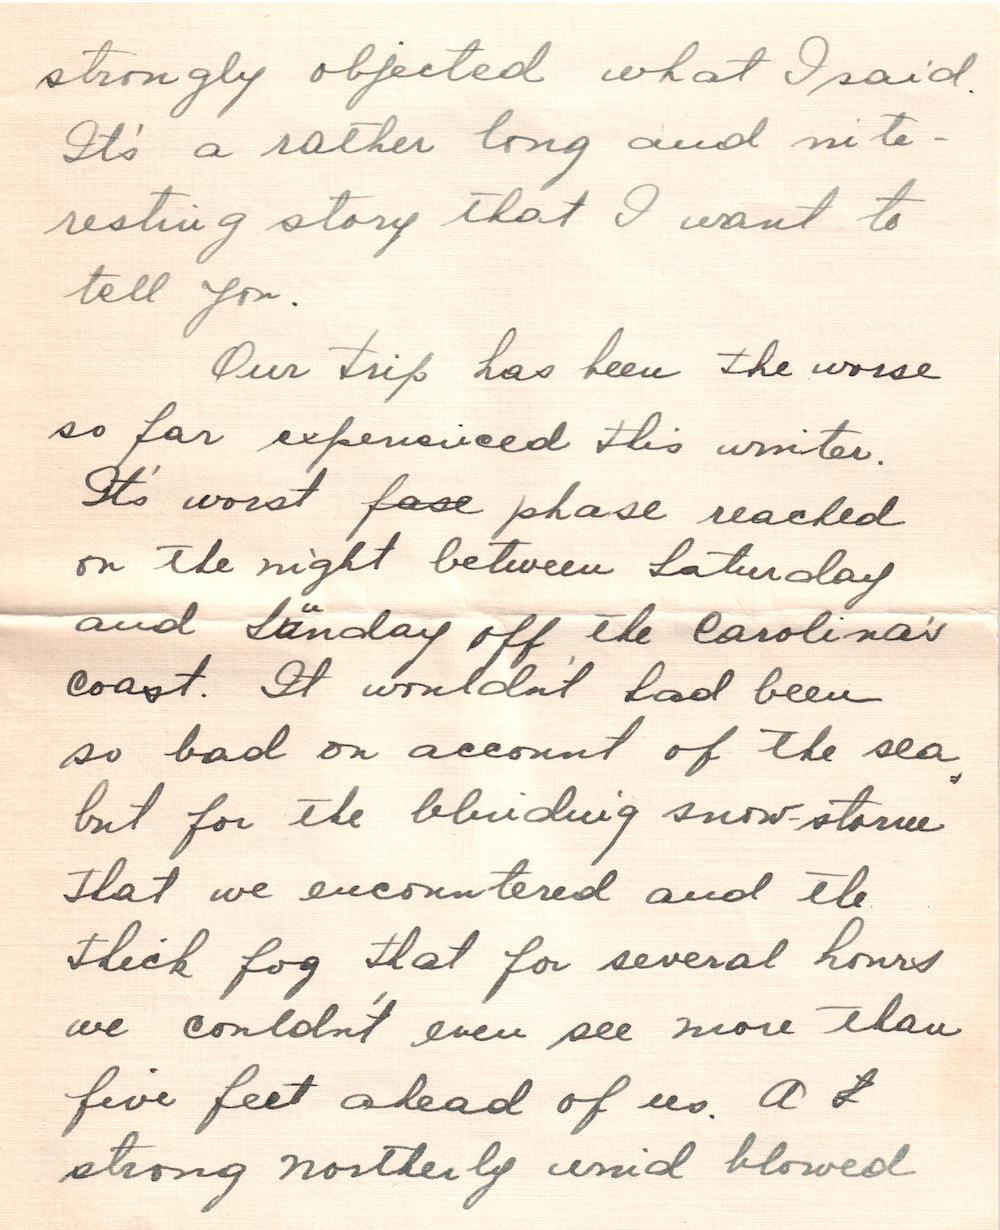 strongly objected what I said.
It's a rather long and inte-
resting story that I want to
tell you.
Our trip has been the worse
so far experienced this winter.
It's worst fase phase reached
on the night between Saturday
and Sunday off the Carolina's
coast. It wouldn't had been
so bad on account of the sea,
but for the blinding snow-storm
that we encountered and the
thick fog, that for several hours
we couldn't even see more than
five feet ahead of us. A
strong northerly wind blowed